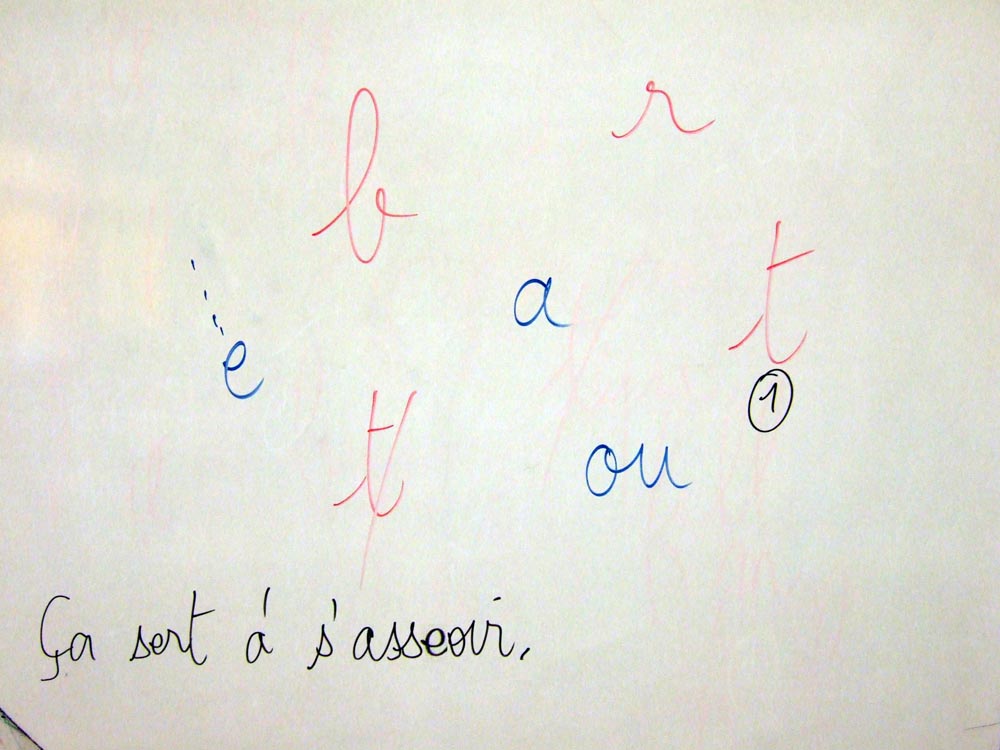 b r
a t
e 1
t ou
Ça sert á s'asseoir.